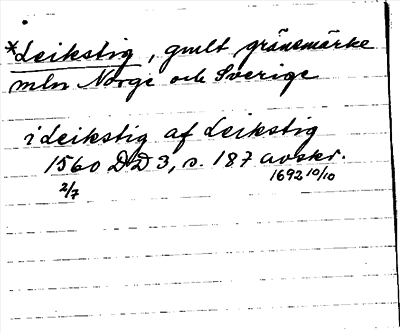 *Leikstig, gmlt gränsmärke
mln Norge och Sverige
i Leikstig af Leikstig
1560 DD3, s. 187 avskr.
2/7 1692 10/10